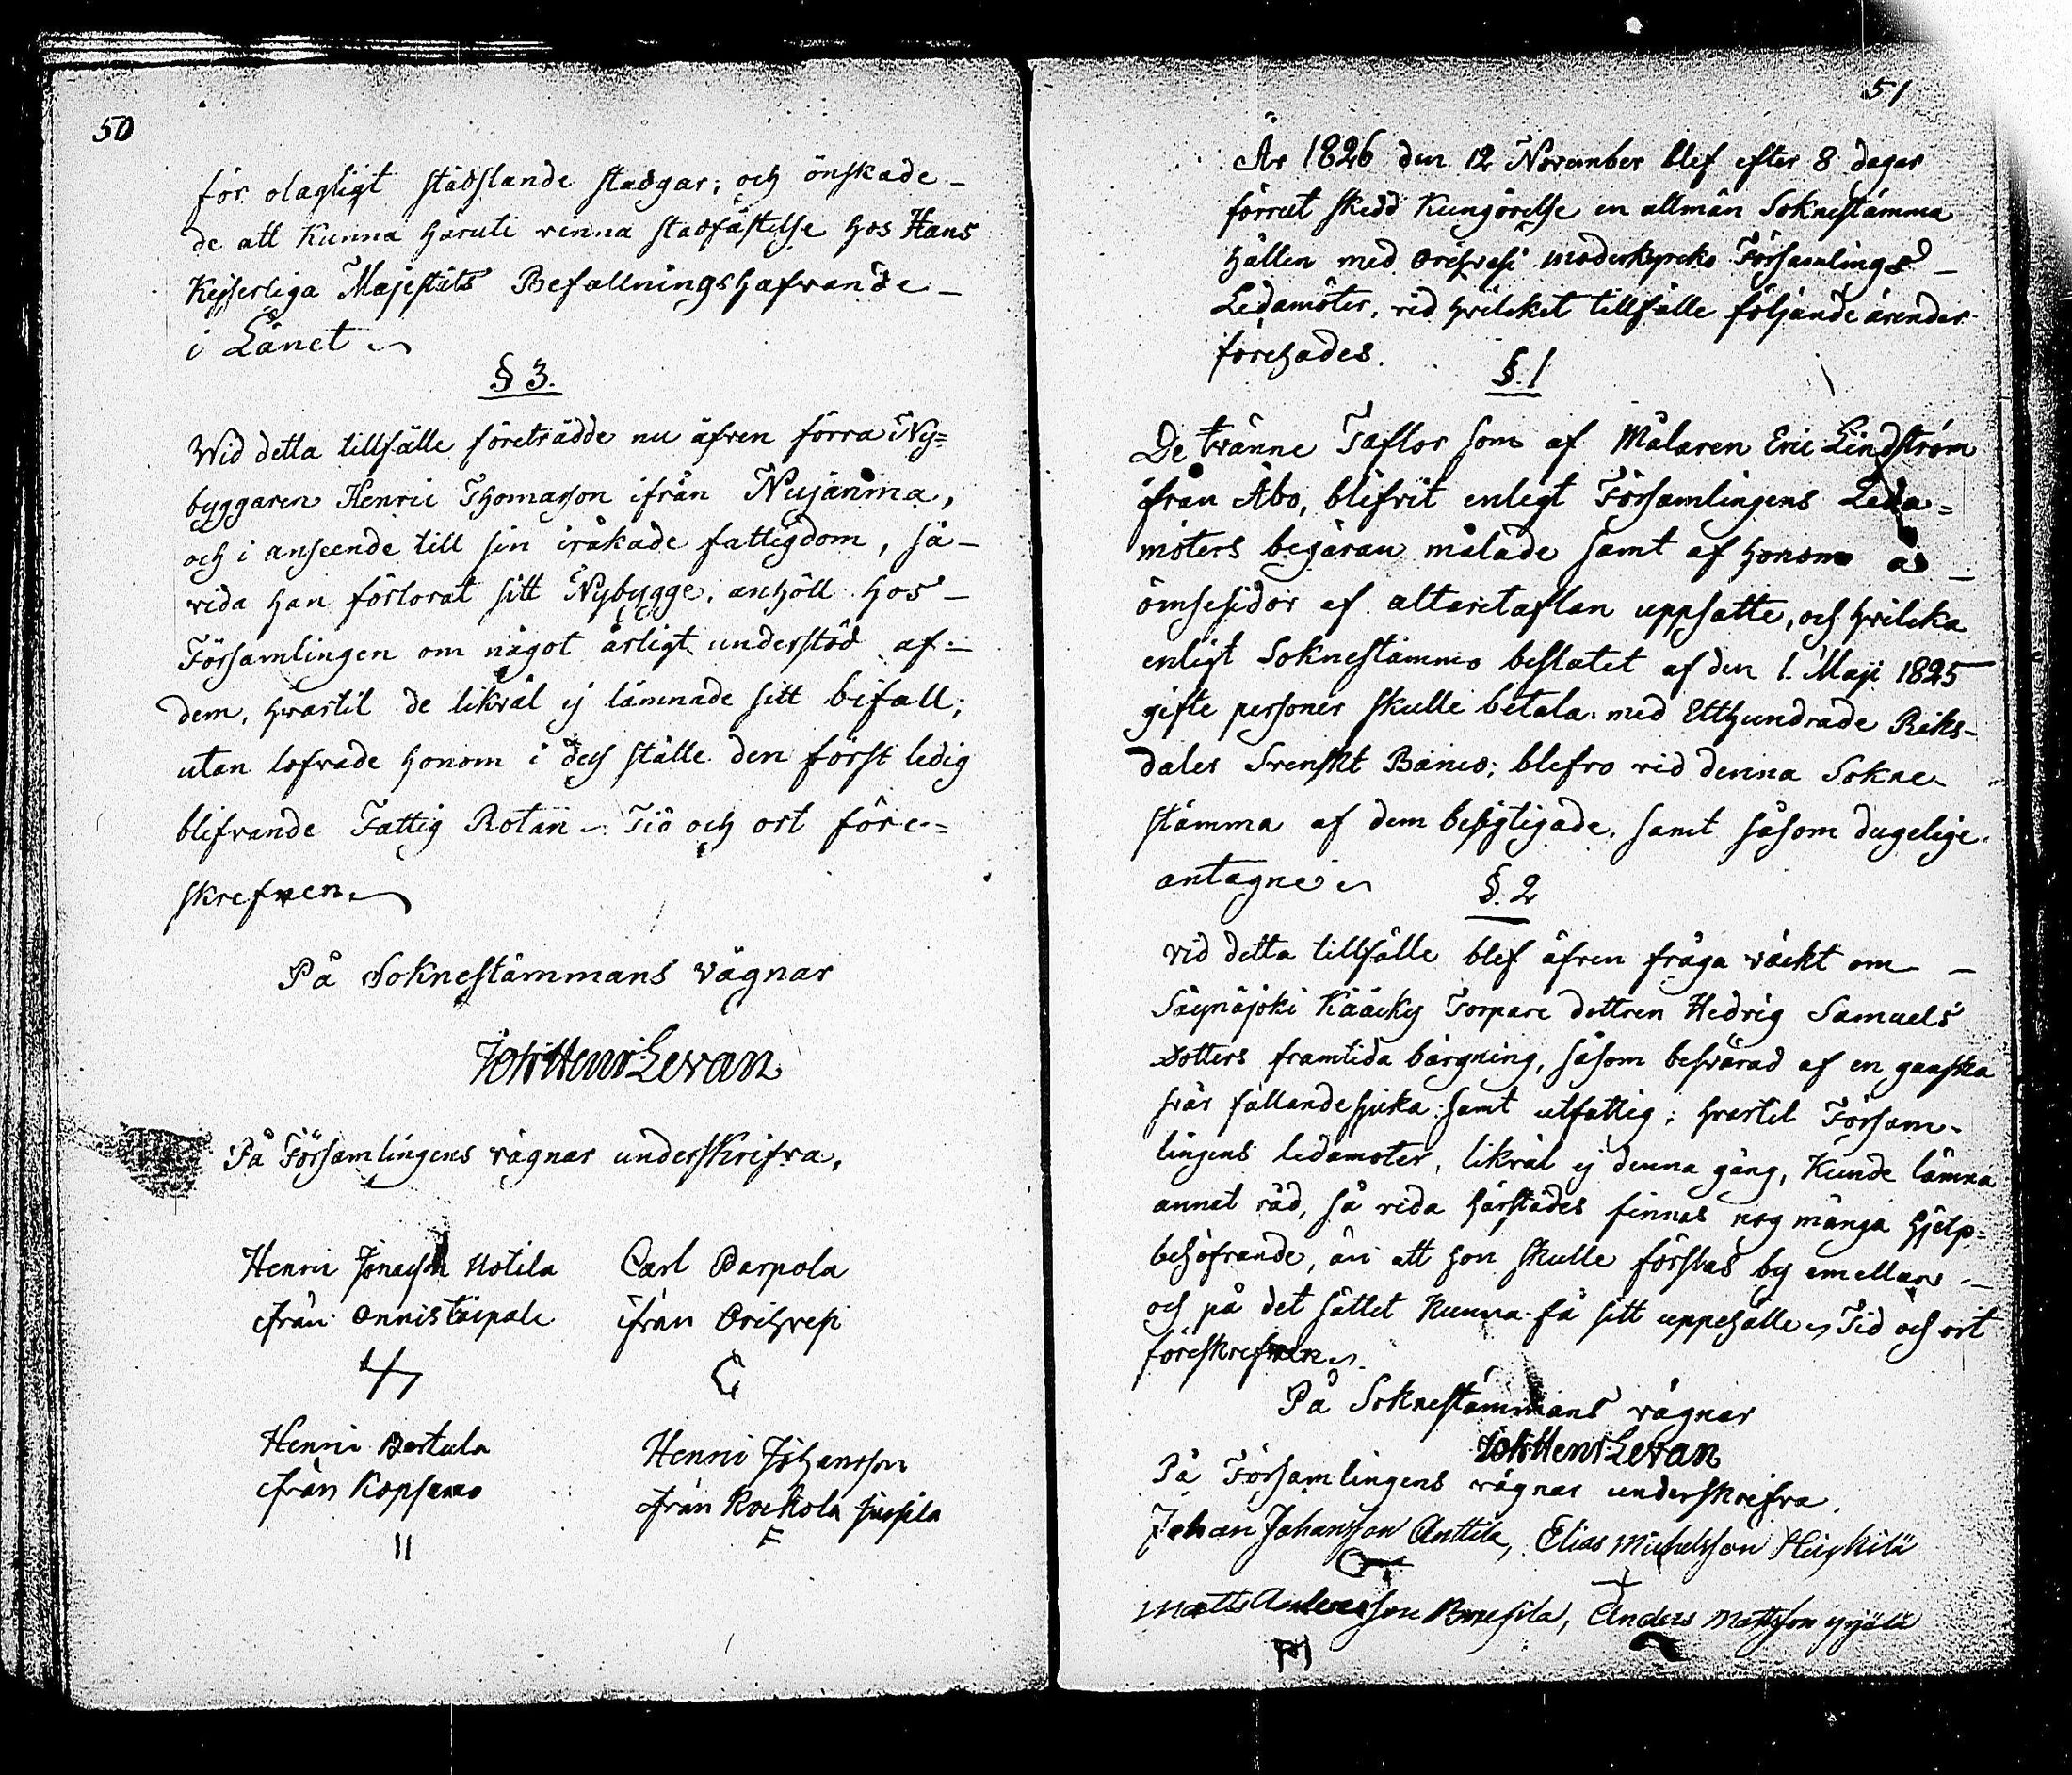 50
för olagligt städslande stadgar; och önskade-
de att kunna häruti vinna stadfästelse hos Hans
Kejserliga Majestäts Befallningshafvande -
i Länet
§ 3.
Wid detta tillfälle företrädde nu äfven förra Ny=
byggaren Henric Thomasson ifrån Nujanma,
och i anseende till sin iråkade fattigdom, så -
vida han förlorat sitt Nybygge, anhöll hos -
Församlingen om något årligt understöd af -
dem, hvartil de likväl ej lämnade sitt bifall;
utan lofvade honom i dess ställe den först ledig
blifvande Fattig Rotan. Tid och ort före=
skrefven.
På Soknestämmans vägnar
Joh Henr Levan
På Församlingens vägnar underskrifva,
Henric Jonasson Uotila
ifrån Onnistaipale
Carl Parpola
ifrån Orihvesi
Henric Bertula
ifrån Kopsamo
Henric Johansson
ifrån Kockola Jussila
51
År 1826 den 12 November blef efter 8 dagar
förrut skedd Kungörelse en allmän Soknestämma
hållen med Orihvesi moderkyrko Församlings -
Ledamöter, vid hvilcket tillfälle följande ärender
förehades.
§. 1
De tvänne Taflor som af Målaren Eric Lindström
ifrån Åbo, blifvit enligt Församlingens Leda=
möters begäran målade samt af honom å -
ömsesidor af altaretaflan uppsatte, och hvilcka
enligt Soknestämmo beslutet af den 1. Maji 1825
gifte personer skulle betala med Etthundrade Riks-
daler Svenskt Banco; blefvo vid denna Sokne-
stämma af dem besigtigade, samt såsom dugelige
antagne
§. 2
Vid detta tillfälle blef äfven fråga väckt om -
Säynäjoki Kääcky Torpare dottren Hedvig Samuels
Dotters framtida bärgning, såsom besvärad af en ganska
svår fallandesjuka samt utfattig; hvartil Försam-
lingens ledamöter, likväl ej denna gång, kunde lämna
annat råd, så vida härstädes finnas nog många hjelp=
behöfvande, än att hon skulle förslas by emellan -
och på det sättet kunna få sitt uppehälle. Tid och ort
föreskrefven.
På Soknestämmans vägnar
Joh Henr Levan
På Församlingens vägnar underskrifva,
Johan Johansson Anttila, Elias Michelsson Heickilä
Matts Andersson Anders Mattsson Yijälä